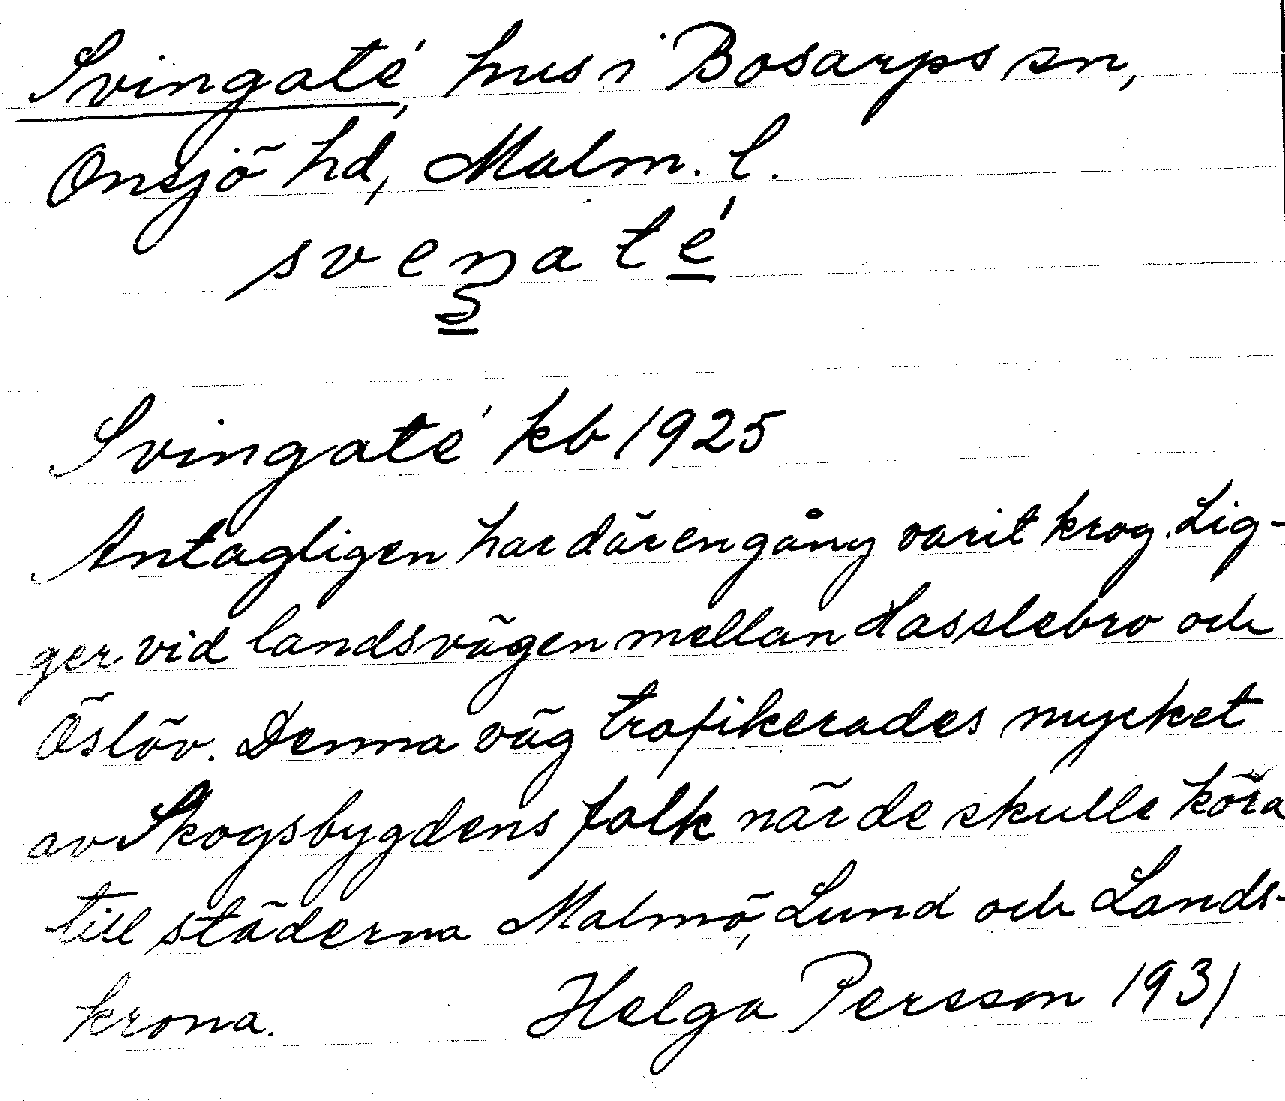 Svingaté, hus i Bosarps sn,
Onsjö hd, Malm. l.
sveŋaté
Svingaté kb 1925
Antagligen har där en gång varit krog. Lig-
ger vid landsvägen mellan Hasslebro och
Öslöv. Denna väg trafikerades mycket
av Skogsbygdens folk när de skulle köra
till städerna Malmö, Lund och Lands-
krona. Helga Persson 1931